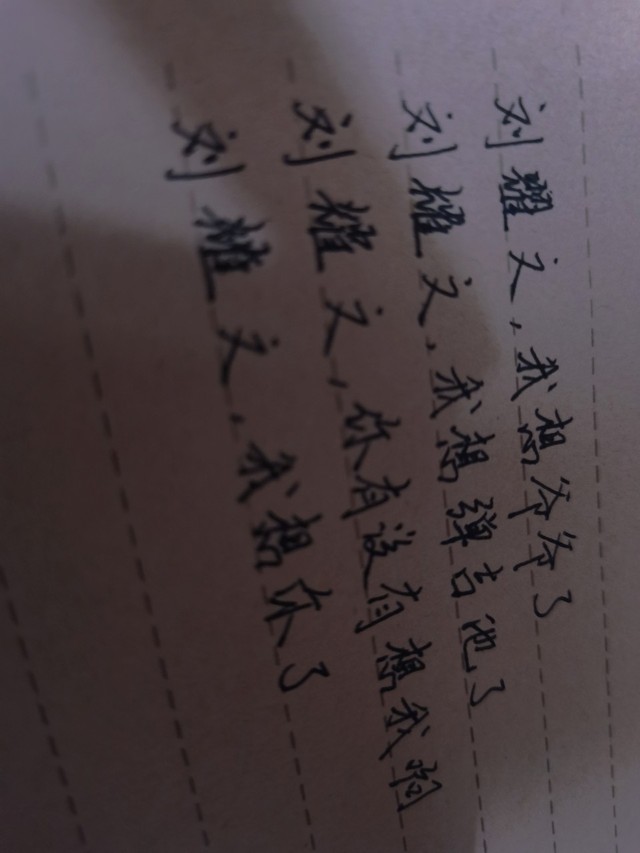 刘耀文,我想爷爷了
刘耀文,我想弹吉他了
刘耀文,你有没有想我啊
刘耀文,我想你了